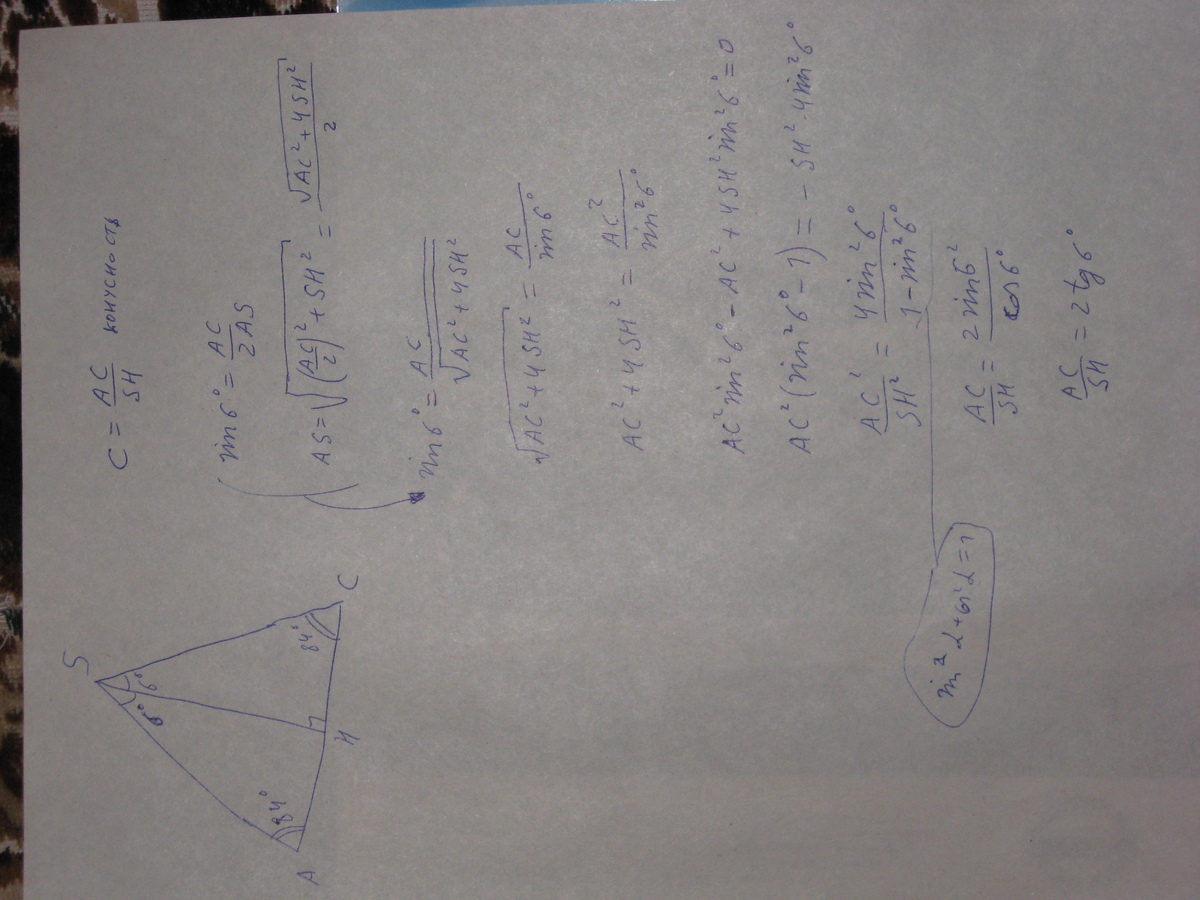 S
6° 6°
84° 84°
A H C
C = AC/SH конусность
sin6° = AC/2AS
AS = √((AC/2)² + SH²) = √(AC² + 4SH²)/2
sin6° = AC/√(AC² + 4SH²)
√(AC² + 4SH²) = AC/sin6°
AC² + 4SH² = AC²/sin²6°
AC² sin²6° - AC² + 4SH² sin²6° = 0
AC² (sin²6° - 1) = - SH² · 4sin²6°
AC²/SH² = 4sin²6°/1 - sin²6°
sin²α + cos²α = 1
AC/SH = 2sin6²/cos6°
AC/SH = 2tg6°